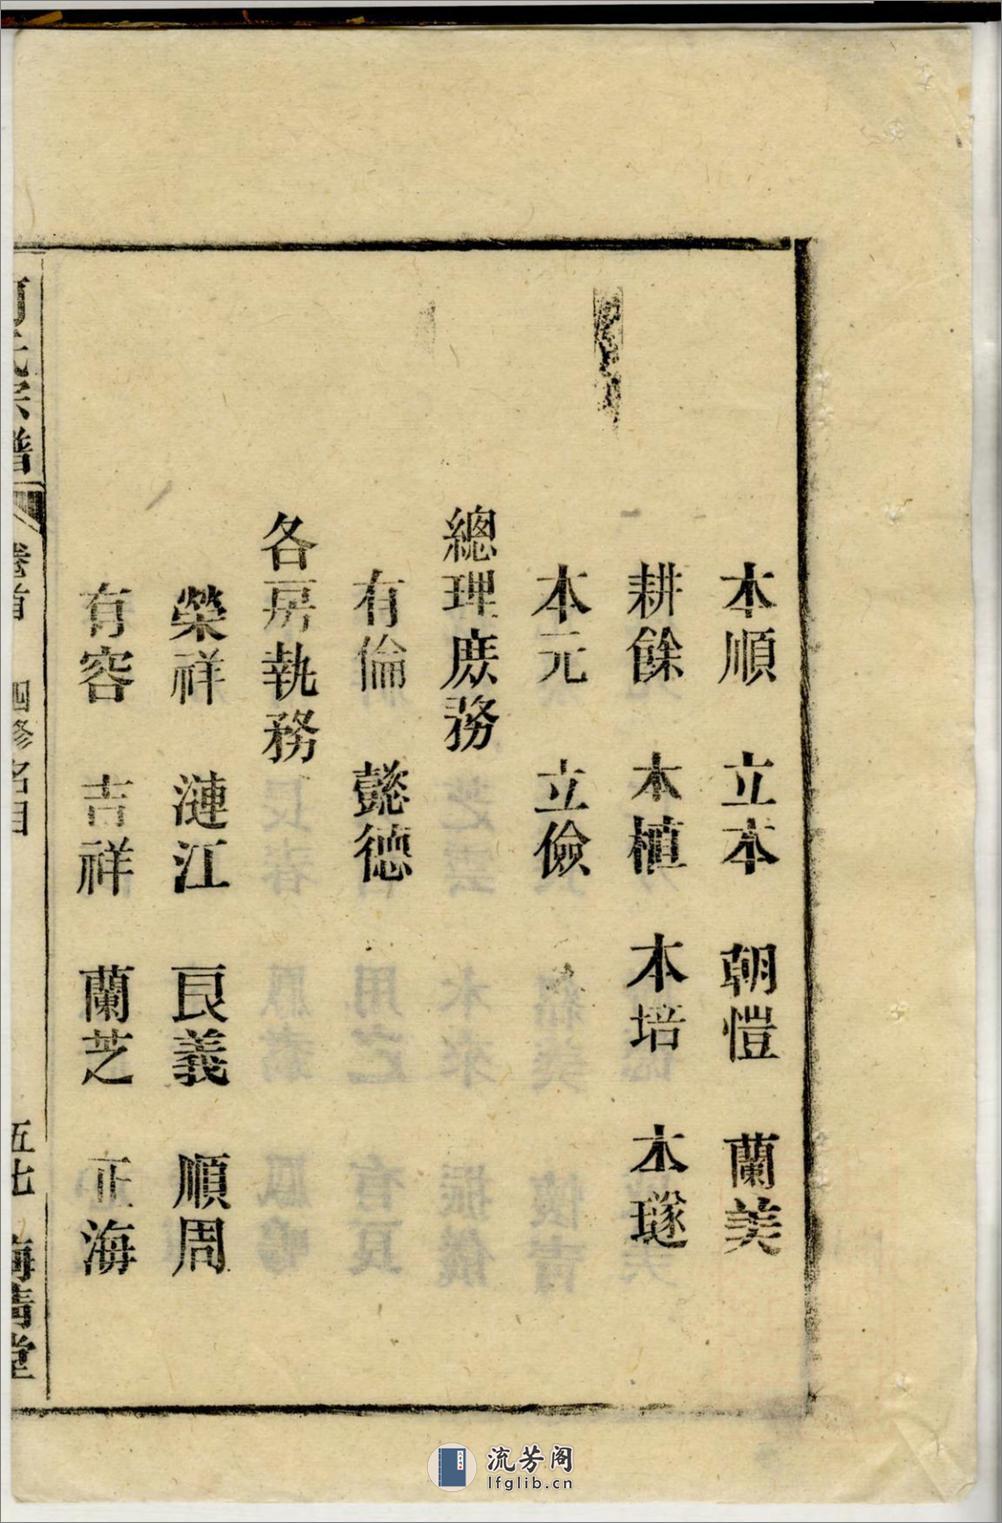 本順 立本 朝愷 蘭美
耕餘 本植 本培 本璲
本元 立儉
總理庶務
有倫 懿德
各房執務
榮祥 漣江 良義 順周
有容 吉祥 蘭芝 正海
氏宗譜 卷首 四修名目 五七 堂
流芳阁
lfglib.cn